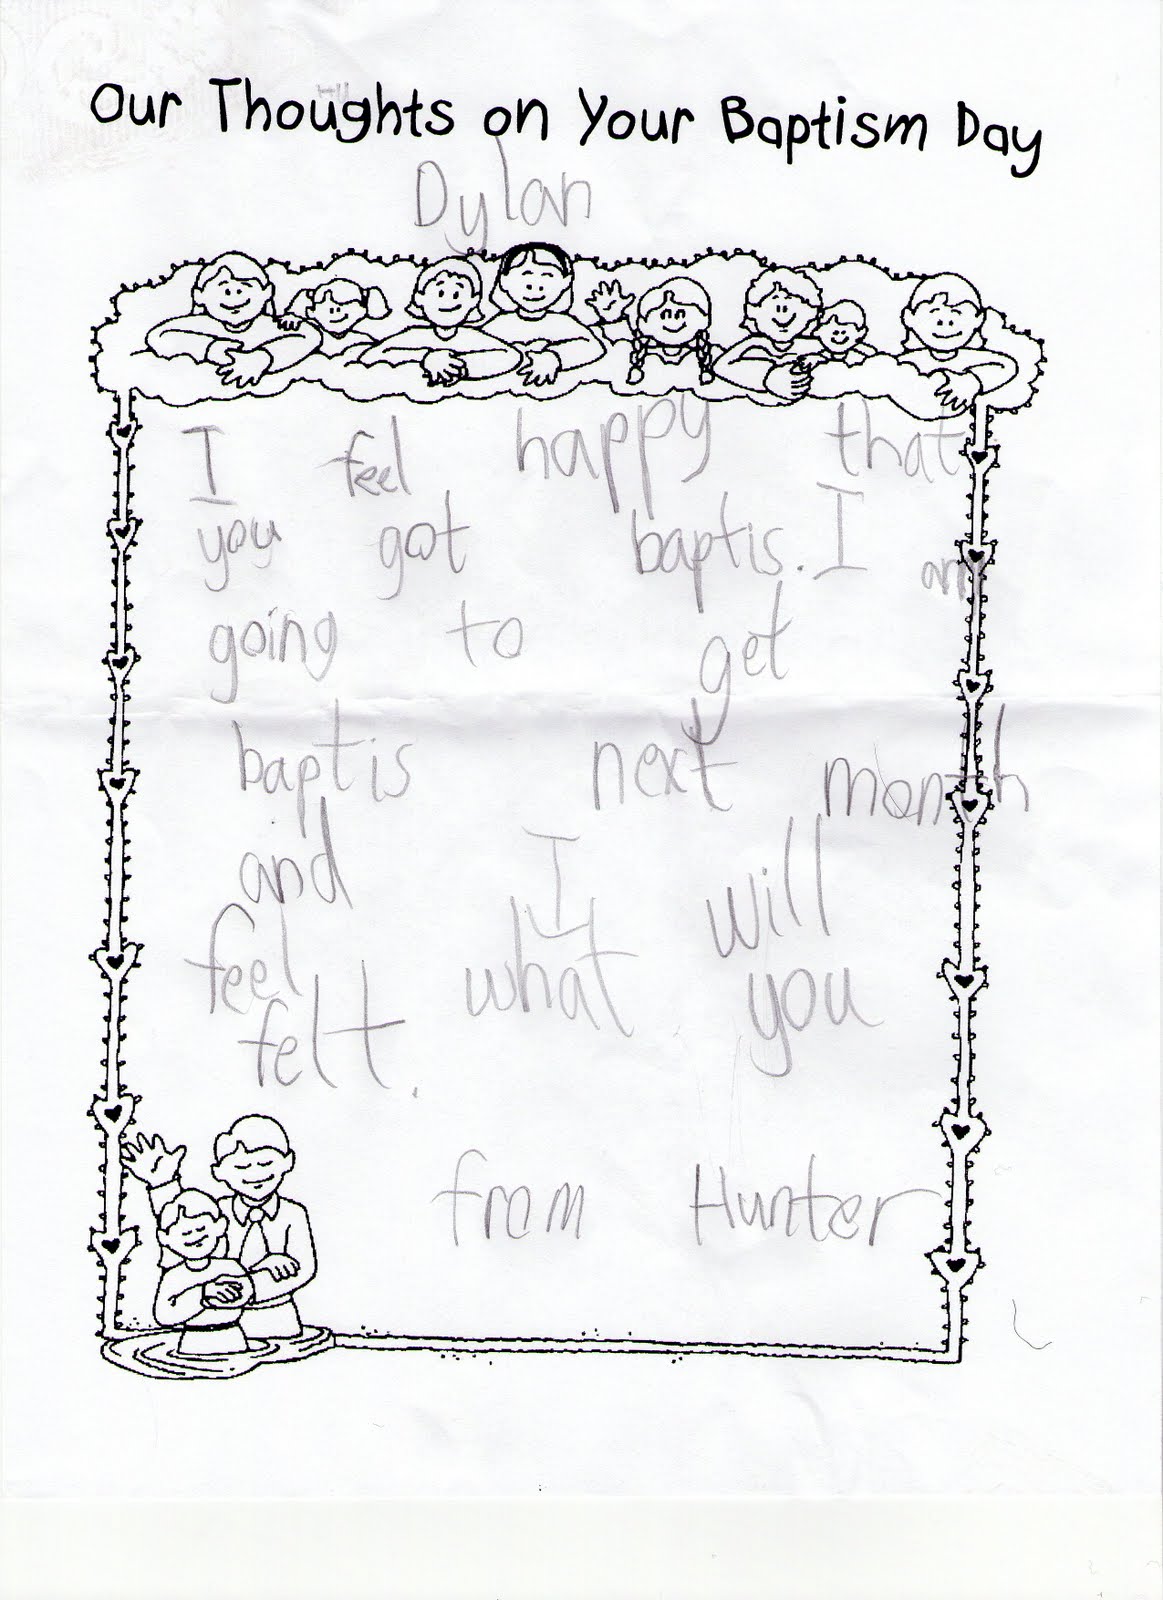 Our Thoughts on Your Baptism Day
Dylan
I feel happy that
you got baptis. I am
going to get
baptis next month
and I will
feel what you
felt.
from Hunter